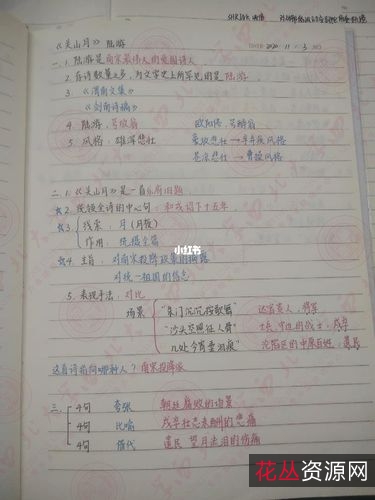 《关山月》 陆游
DATE 2020.11.3
一.1. 陆游是南宋最伟大的爱国诗人
2. 存诗数量之多,为文学史上所罕见的是 陆游.
3. 《渭南文集》
《剑南诗稿》
4. 陆游,号放翁 欧阳修,号醉翁
5. 风格:雄浑悲壮 豪放悲壮→辛弃疾风格
苍凉悲壮→曹操风格
二.1.《关山月》是一首乐府旧题
2. 统领全诗的中心句:和戎诏下十五年.
3 线索:月(月夜)
作用:统摄全篇
小红书
4. 主旨:对南宋投降政策的揭露
对统一祖国的信念
5. 表现手法:对比
场景 "朱门沉沉按歌舞" 达官贵人,将军
"沙头空照征人骨" 士兵,守边的战士,戍卒
"几处今宵垂泪痕" 沦陷区的中原百姓,遗民
这首诗指向哪种人?南宋投降派
三. 4句 夸张 朝廷腐败的场景
4句 比喻 戍卒壮志未酬的悲痛
4句 借代 遗民望月流泪的伤痛
花丛资源网